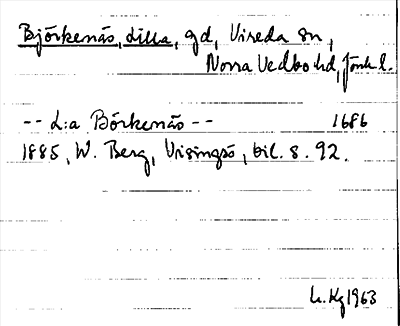 Björkenäs, Lilla, gd, Vireda sn,
Norra Vedbo hd, Jönk. l.
-- L:a Börkenäs -- 1686
1885, W. Berg, Visingsö, bil. s. 92.
L. Kg 1963